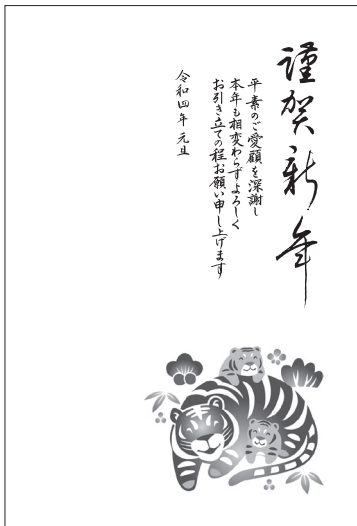 謹賀新年
平素のご愛顧を深謝し
本年も相変わらずよろしく
お引き立ての程お願い申し上げます
令和四年 元旦